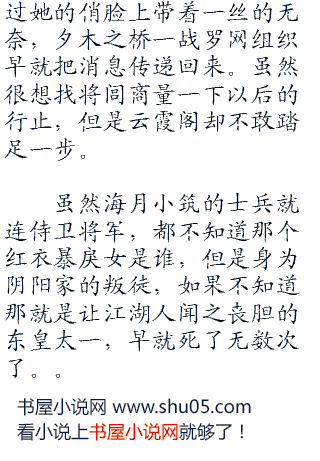 过她的俏脸上带着一丝的无
奈，夕木之桥一战罗网组织
早就把消息传递回来。虽然
很想找将闾商量一下以后的
行止，但是云霞阁却不敢踏
足一步。
虽然海月小筑的士兵就
连侍卫将军，都不知道那个
红衣暴戾女是谁，但是身为
阴阳家的叛徒，如果不知道
那就是让江湖人闻之丧胆的
东皇太一，早就死了无数次
了。。
书屋小说网 www.shu05.com
看小说上书屋小说网就够了！